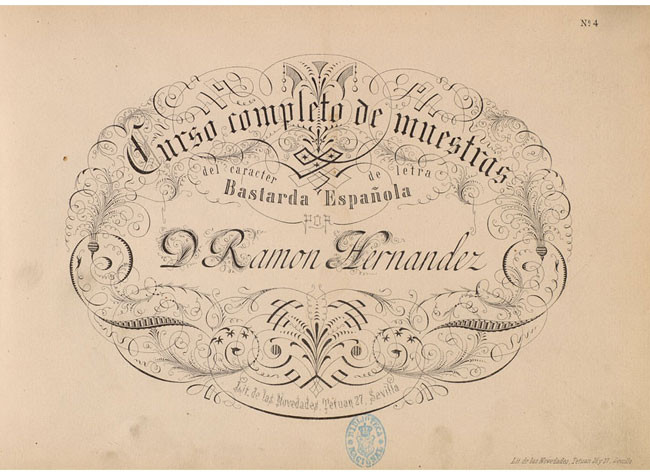 Nº 4
Curso completo de muestras
del caracter de letra
Bastarda Española
POR
D. Ramon Hernandez
Lit. de las Novedades, Tetuan 27, Sevilla
BIBLIOTECA
Lit. de las Novedades, Tetuan 25 y 27. Sevilla